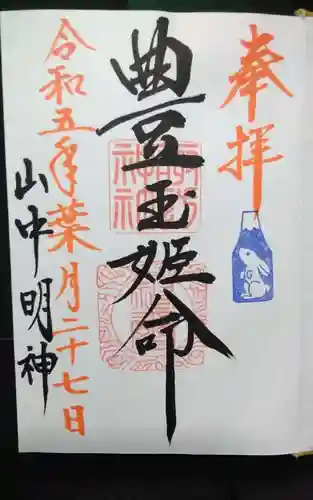 奉拝
豊玉姫命
令和五年葉月二十七日
山中明神